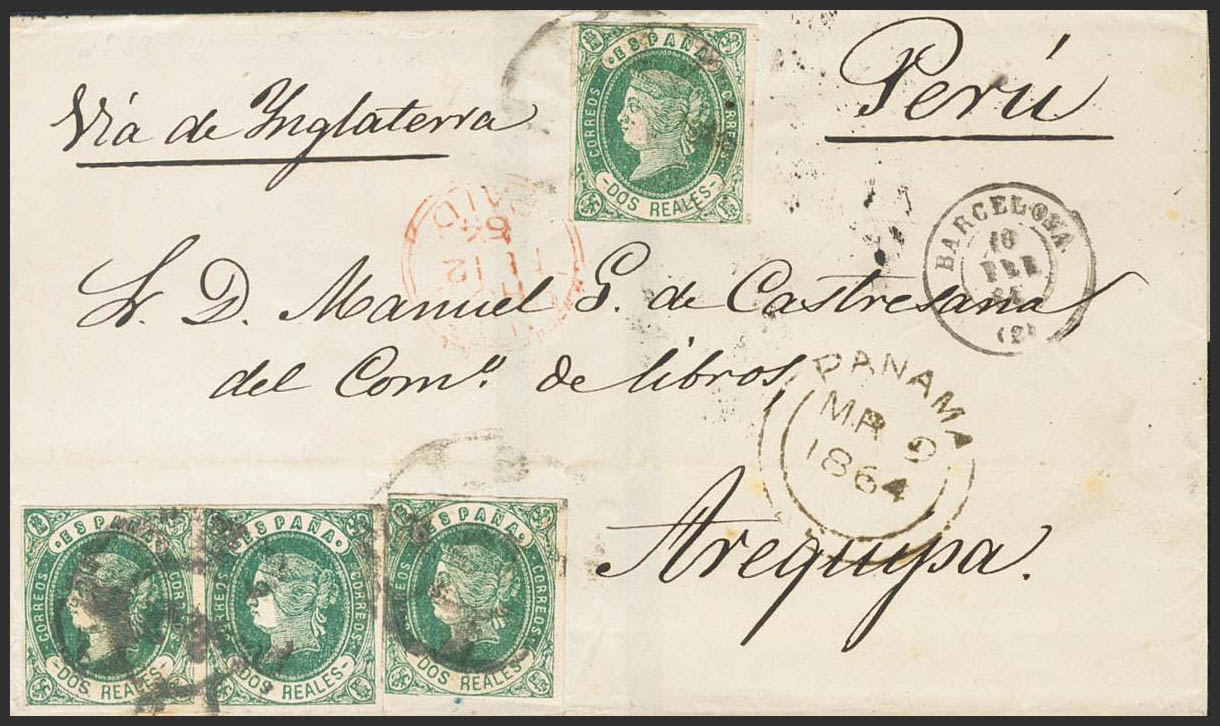 Perú
Vía de Inglaterra
ESPAÑA
CORREOS
CORREOS
DOS REALES
BARCELONA
FEB
(2)
PAID
64
FE 12
Sr. D. Manuel G. de Castresana
del Comº. de libros,
PANAMA
MR 9
1864
Arequipa.
ESPAÑA
CORREOS
CORREOS
DOS REALES
ESPAÑA
CORREOS
CORREOS
DOS REALES
ESPAÑA
CORREOS
CORREOS
DOS REALES